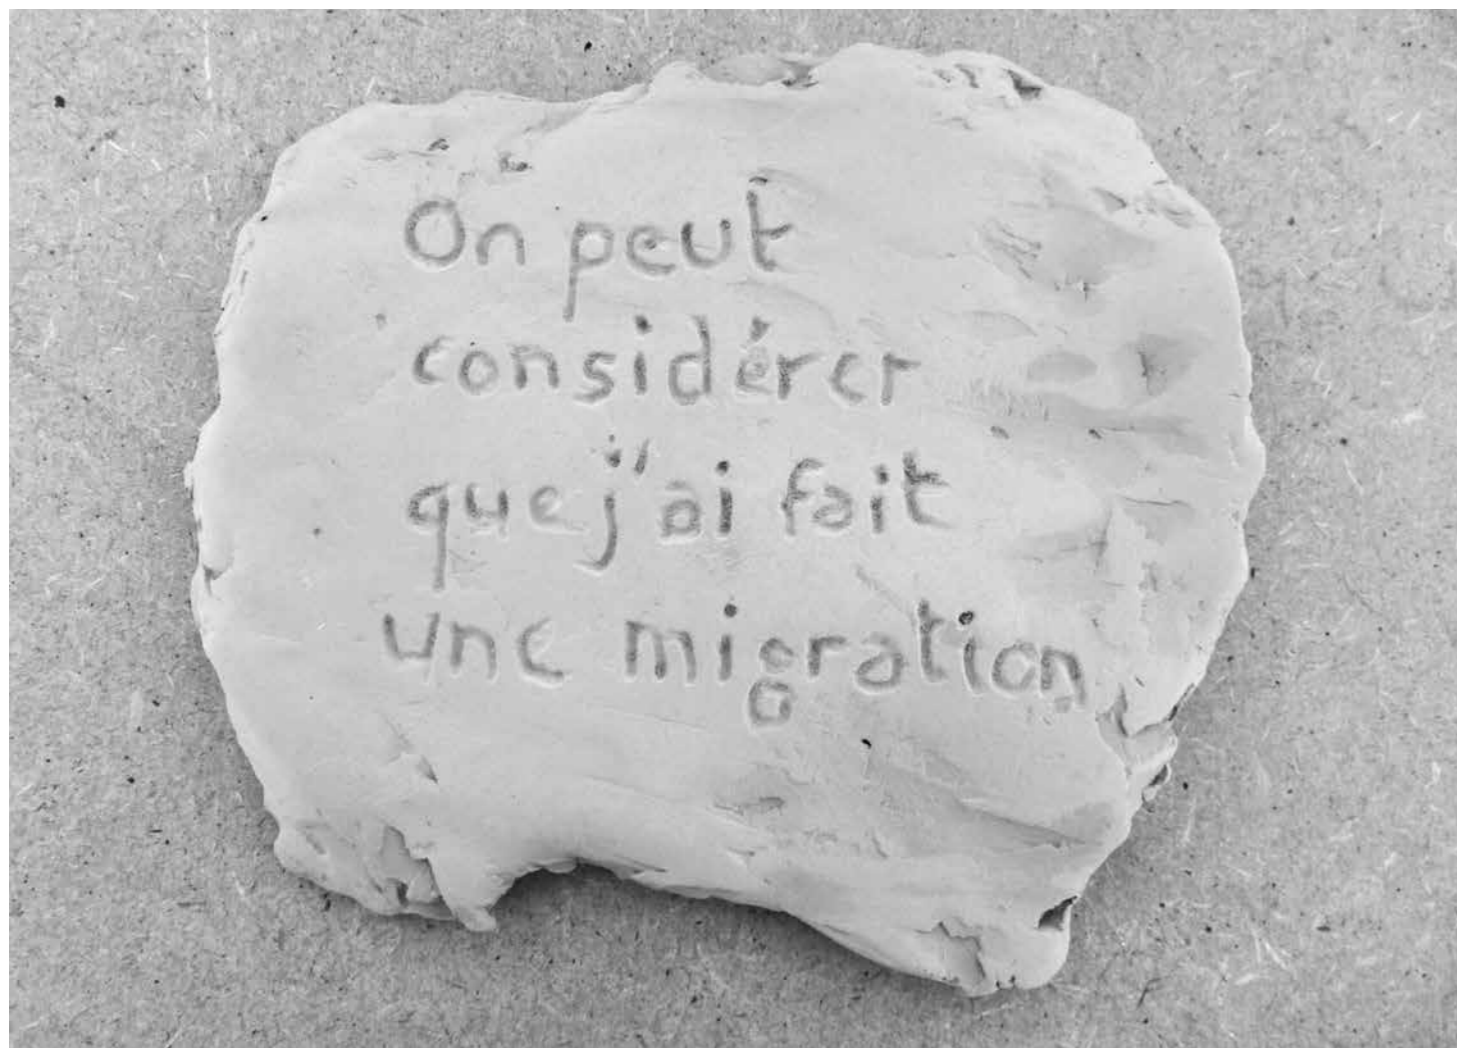 On peut
considérer
que j'ai fait
une migration